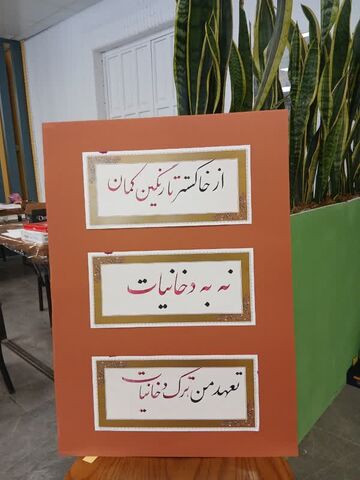 از خاکستر تا رنگین کمان
نه به دخانیات
تعهد من ترک دخانیات